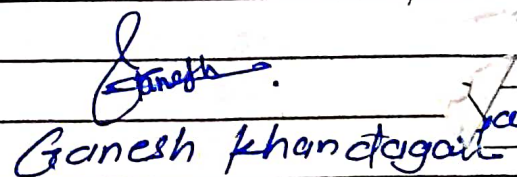 Ganesh
Ganesh Khandagale